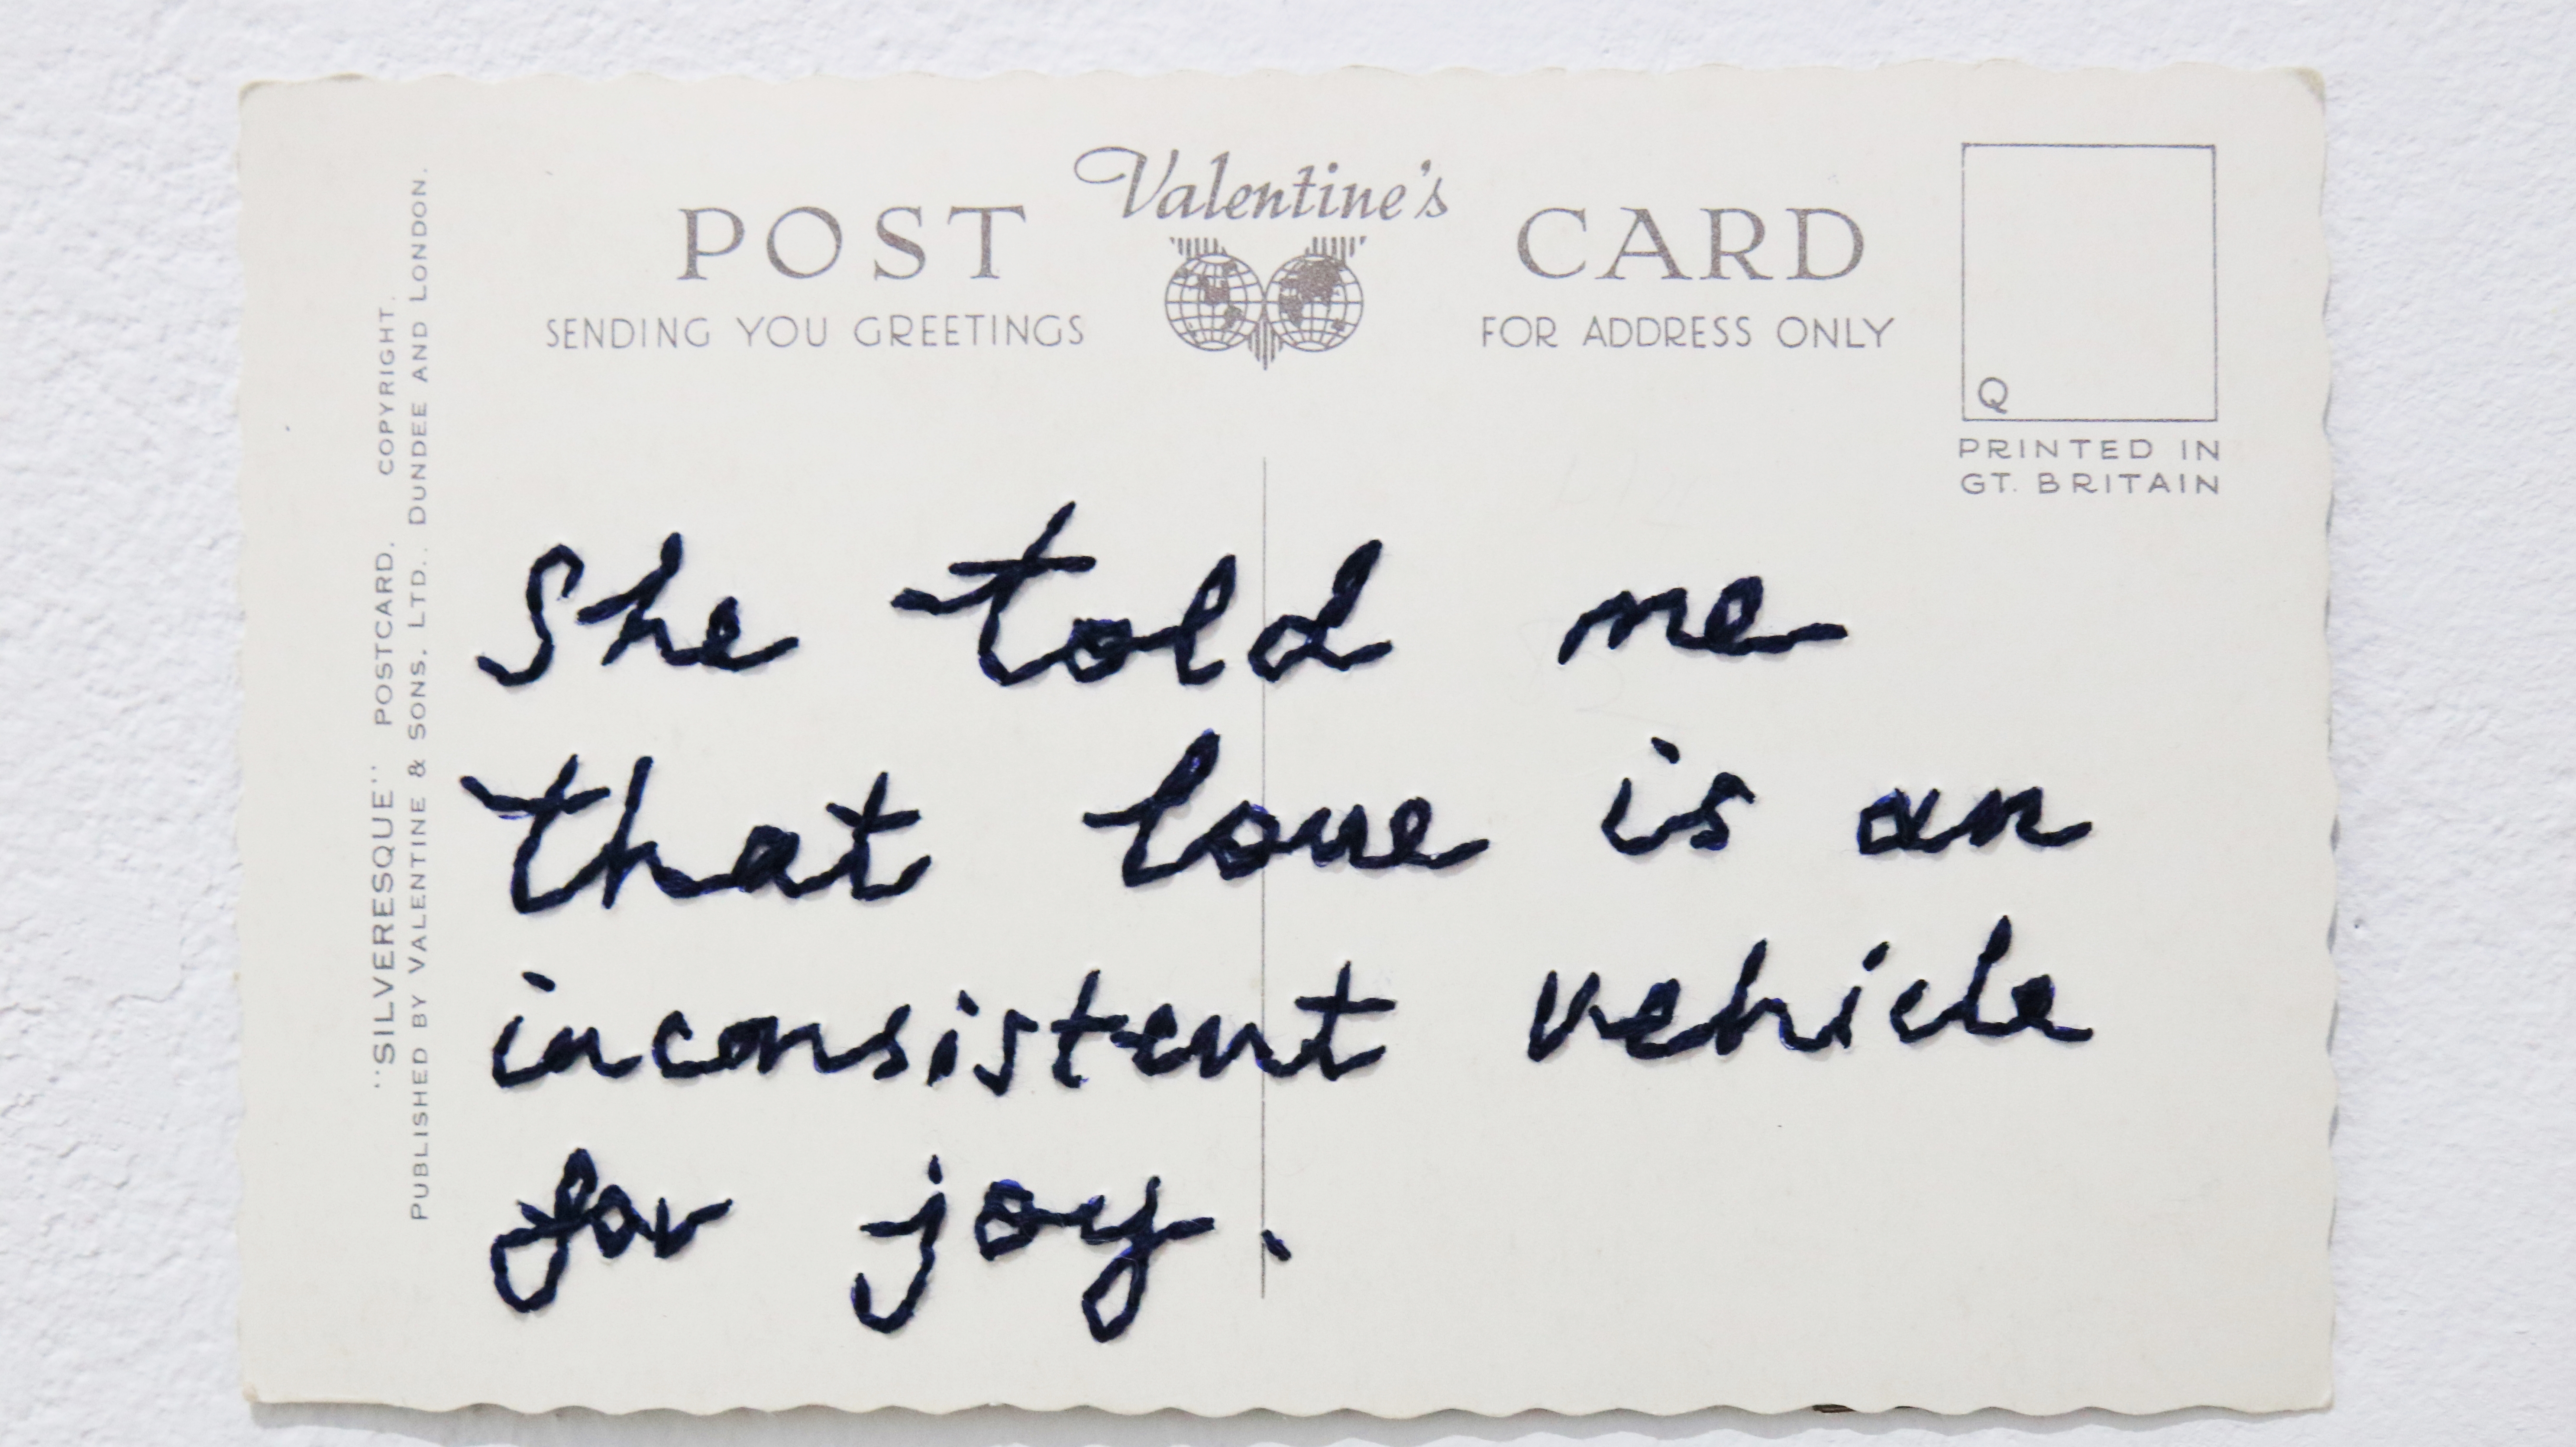 Valentine's
POST CARD
SENDING YOU GREETINGS
FOR ADDRESS ONLY
Q
PRINTED IN
GT. BRITAIN
"SILVERESQUE" POSTCARD. COPYRIGHT.
PUBLISHED BY VALENTINE & SONS. LTD. DUNDEE AND LONDON.
She told me
that love is an
inconsistent vehicle
for joy.